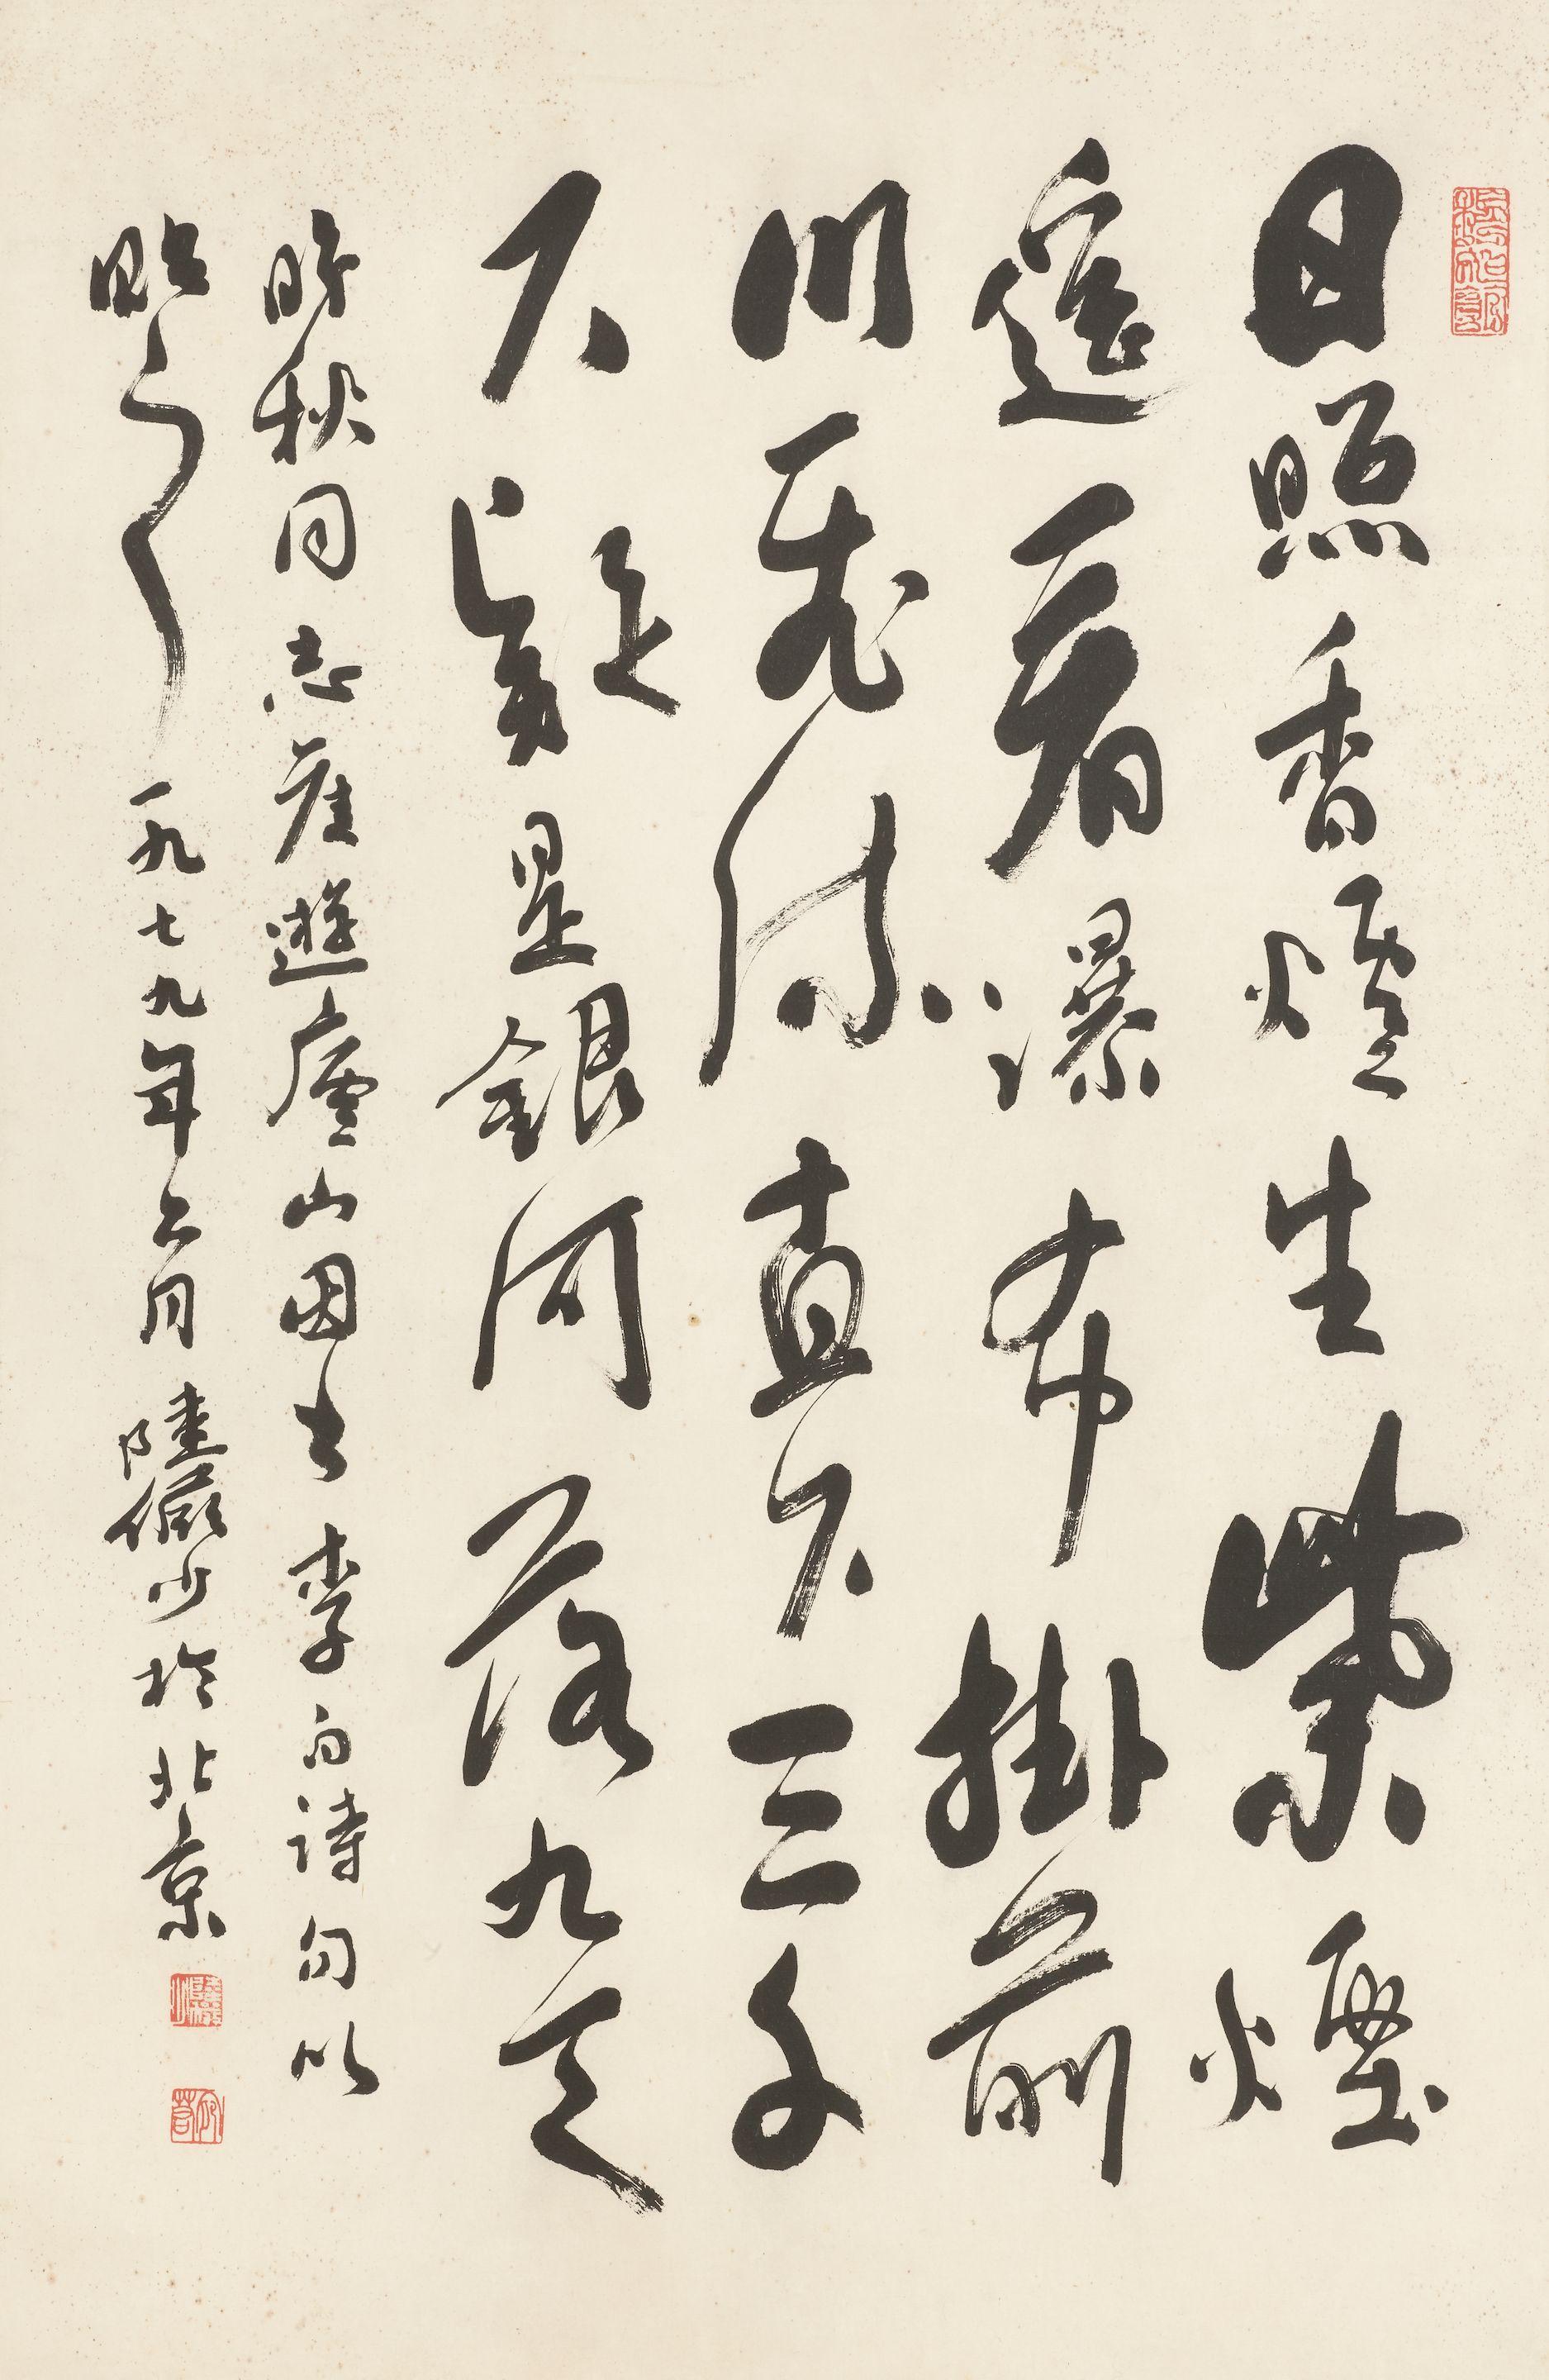 日照香爐生紫煙
遙看瀑布掛前
川飛流直下三千
尺疑是銀河落九天
秋同志遊廬山因書李白詩句以
貽之一九七九年二月陸儼少於北京